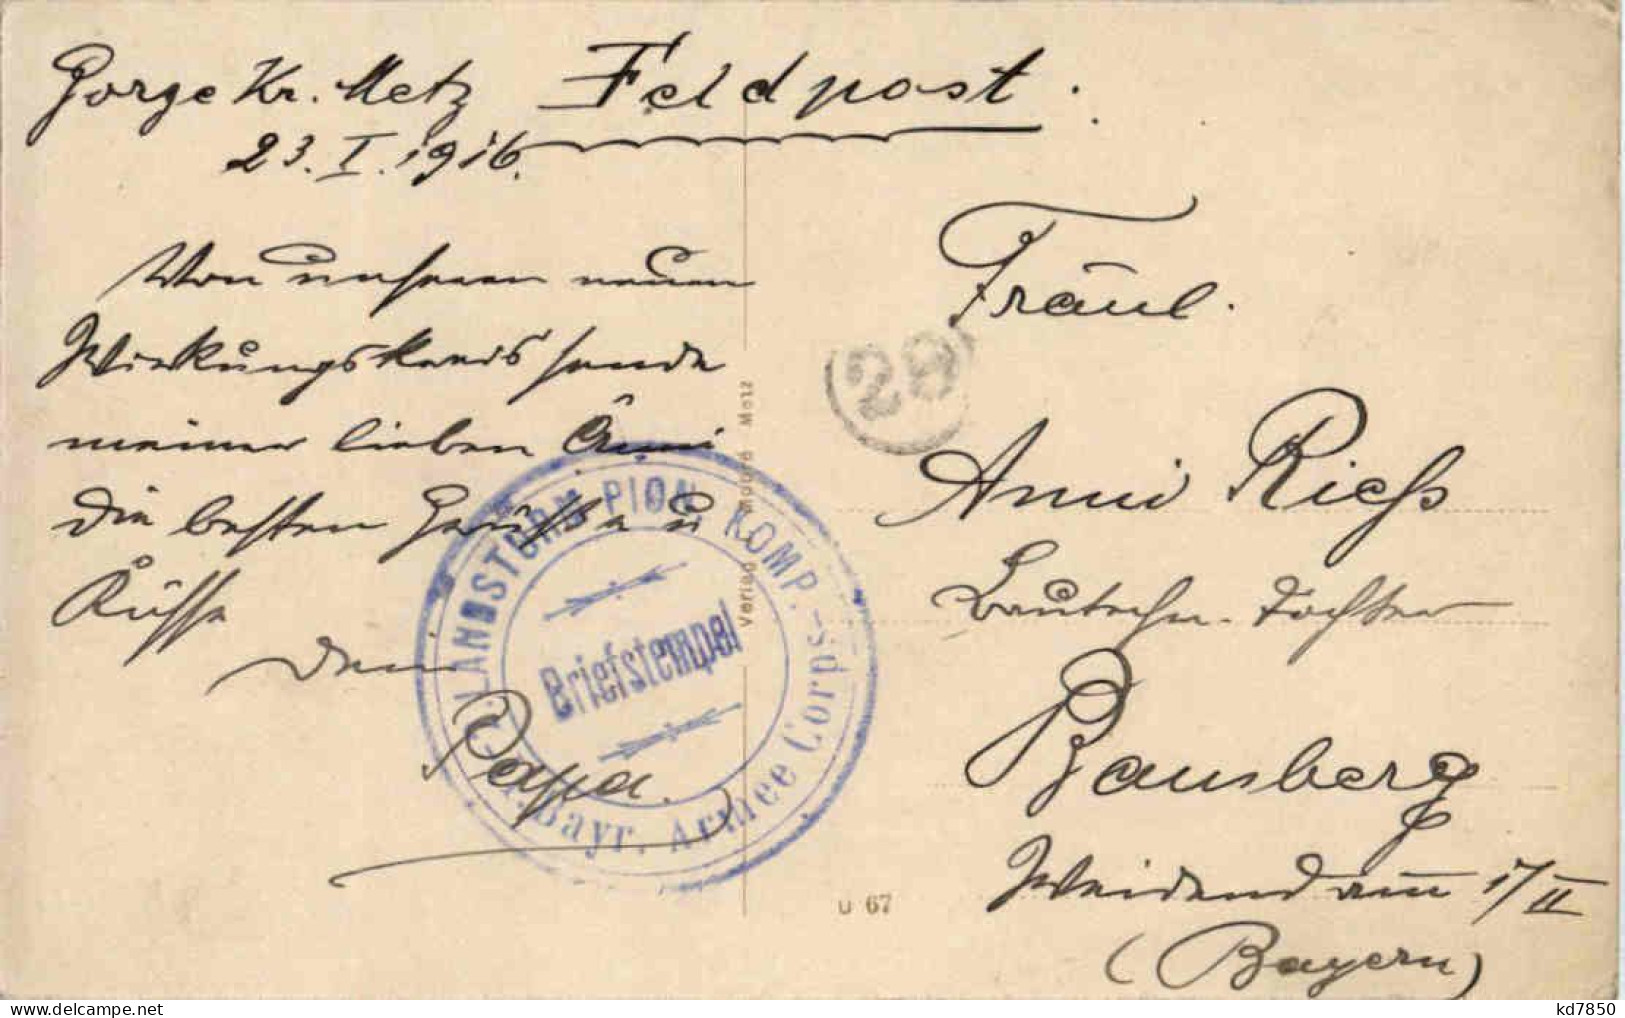 Gorze Kr. Metz Feldpost.
23. I. 1916.
Von unserem neuen
Wirkungskreis sende
meiner lieben Anni
die besten Grüsse u
Küsse
Dein
Papa.
Fräul.
Anni Riess
Bautechn. Tochter
Bamberg
Weidendamm 17/II
(Bayern)
28
LANDSTURM PION. KOMP.-
Bayr. Armee Corps
Briefstempel
Verlag Metz
U 67
kd7850